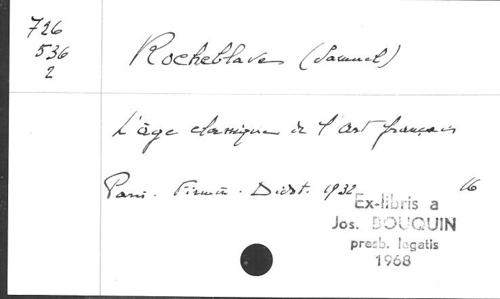 726
536
2
Rocheblave (Samuel)
L'âge classique de l'art français
Paris. Firmin. Didot. 1932 16
Ex-libris a
Jos. BOUQUIN
presb. legatis
1968